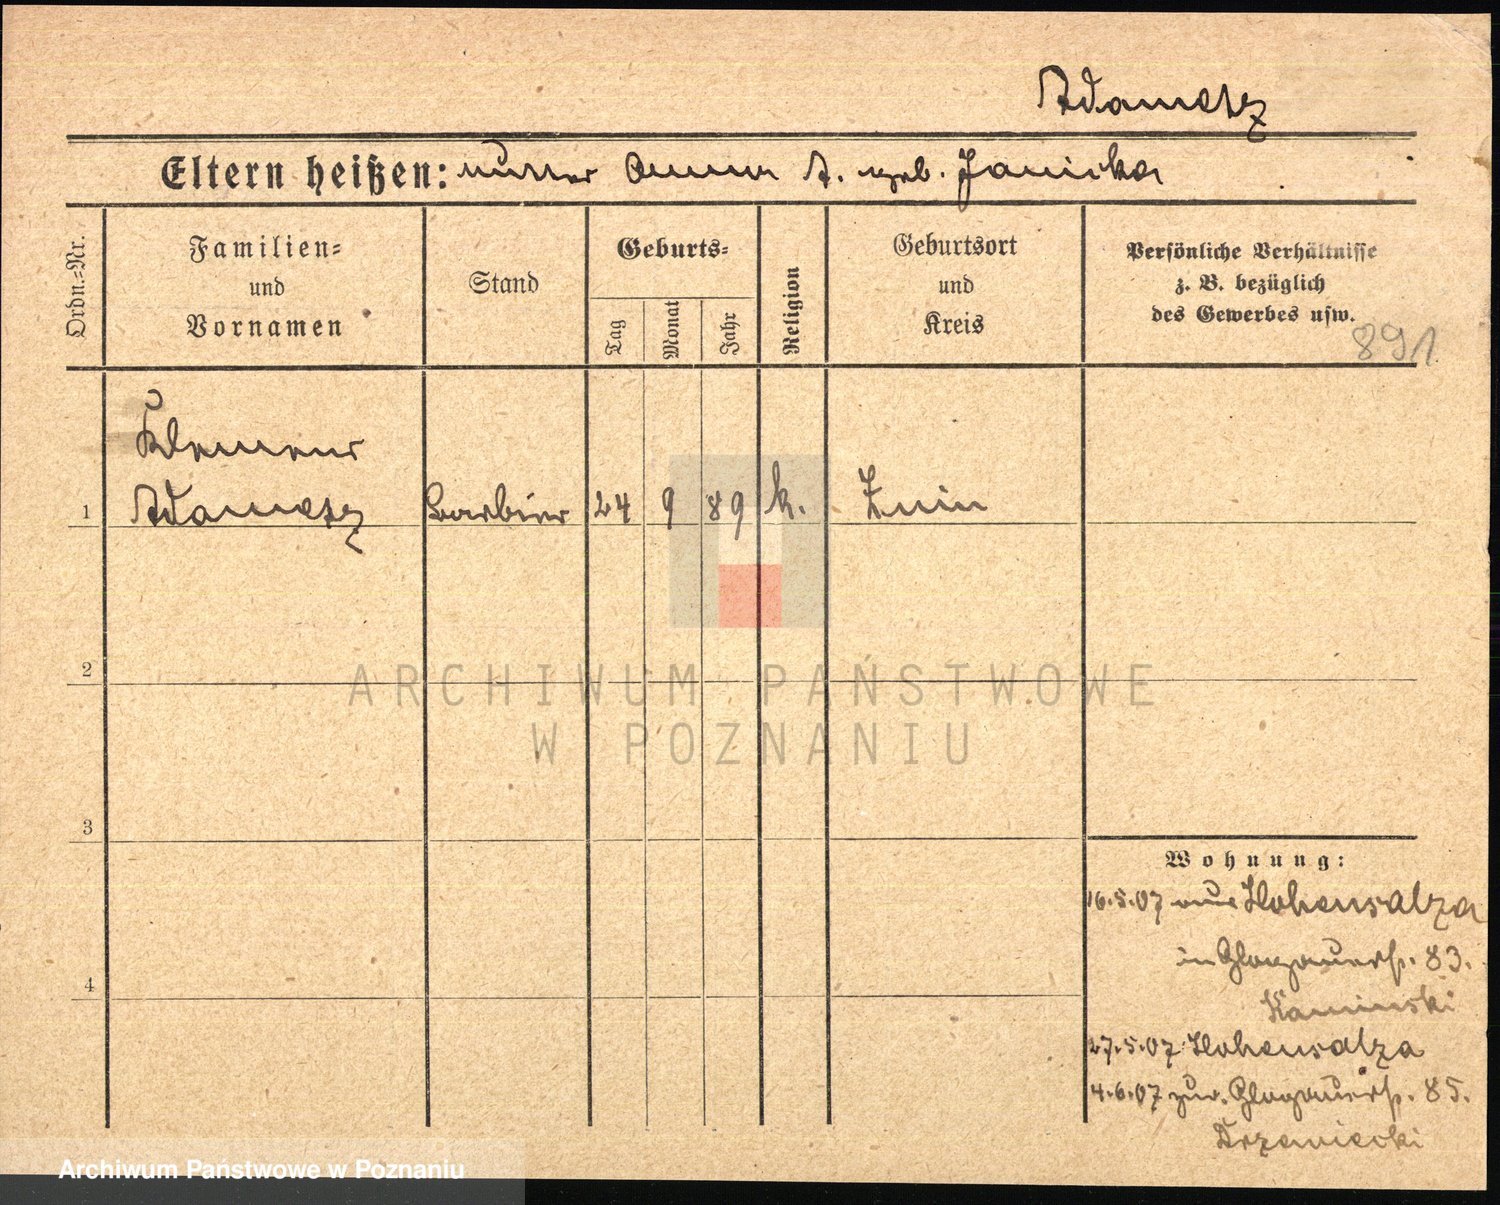 Adametz
Eltern heißen: Mutter Anna A. geb. Janicka
Ordn.-Nr.
Familien-
und
Vornamen
Stand
Geburts-
Tag
Monat
Jahr
Religion
Geburtsort
und
Kreis
Persönliche Verhältnisse
z. B. bezüglich
des Gewerbes usw.
891
Klemens
1 Adametz Barbier 24 9 89 k. Znin
2
ARCHIWUM PAŃSTWOWE
W POZNANIU
3
4
Wohnung:
16.5.07 aus Hohensalza
in Glogauerstr. 83.
Kaminski
27.5.07 Hohensalza
4.6.07 zur. Glogauerstr. 85.
Drzewiecki
Archiwum Państwowe w Poznaniu